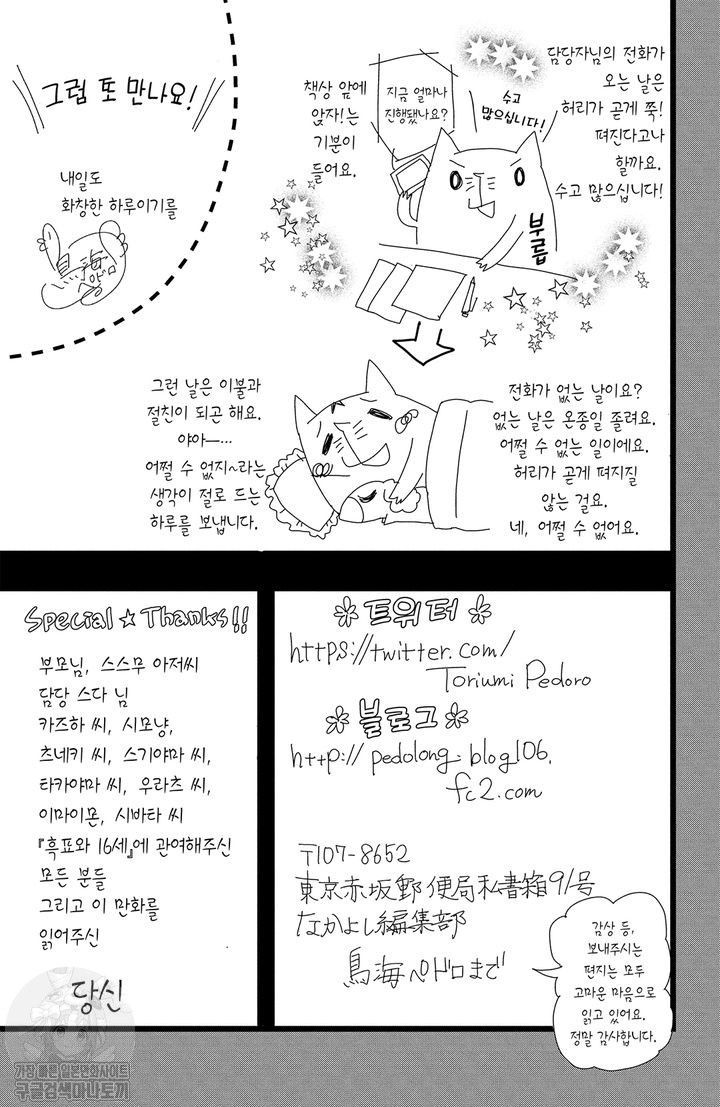 담당자님의 전화가
오는 날은
허리가 곧게 쭉!
펴진다고나
할까요.
수고 많으십니다!
수고
많으십니다!
지금 얼마나
진행됐나요?
책상 앞에
앉자!는
기분이
들어요.
부릅
전화가 없는 날이요?
없는 날은 온종일 졸려요.
어쩔 수 없는 일이에요.
허리가 곧게 펴지질
않는 걸요.
네, 어쩔 수 없어요.
그런 날은 이불과
절친이 되곤 해요.
야아—…
어쩔 수 없지~라는
생각이 절로 드는
하루를 보냅니다.
그럼 또 만나요!
내일도
화창한 하루이기를
Special☆Thanks!!
부모님, 스스무 아저씨
담당 스다 님
카즈하 씨, 시모냥,
츠네키 씨, 스기야마 씨,
타카야마 씨, 우라츠 씨,
이마이몬, 시바타 씨
『흑표와 16세』에 관여해주신
모든 분들
그리고 이 만화를
읽어주신
당신
트위터
https://twitter.com/
Toriumi Pedoro
블로그
http://pedolong.blog106.
fc2.com
〒107-8652
東京赤坂郵便局私書箱91号
なかよし編集部
鳥海ペドロまで
감상 등,
보내주시는
편지는 모두
고마운 마음으로
읽고 있어요.
정말 감사합니다.
가장 빠른 일본만화사이트
구글검색마나토끼